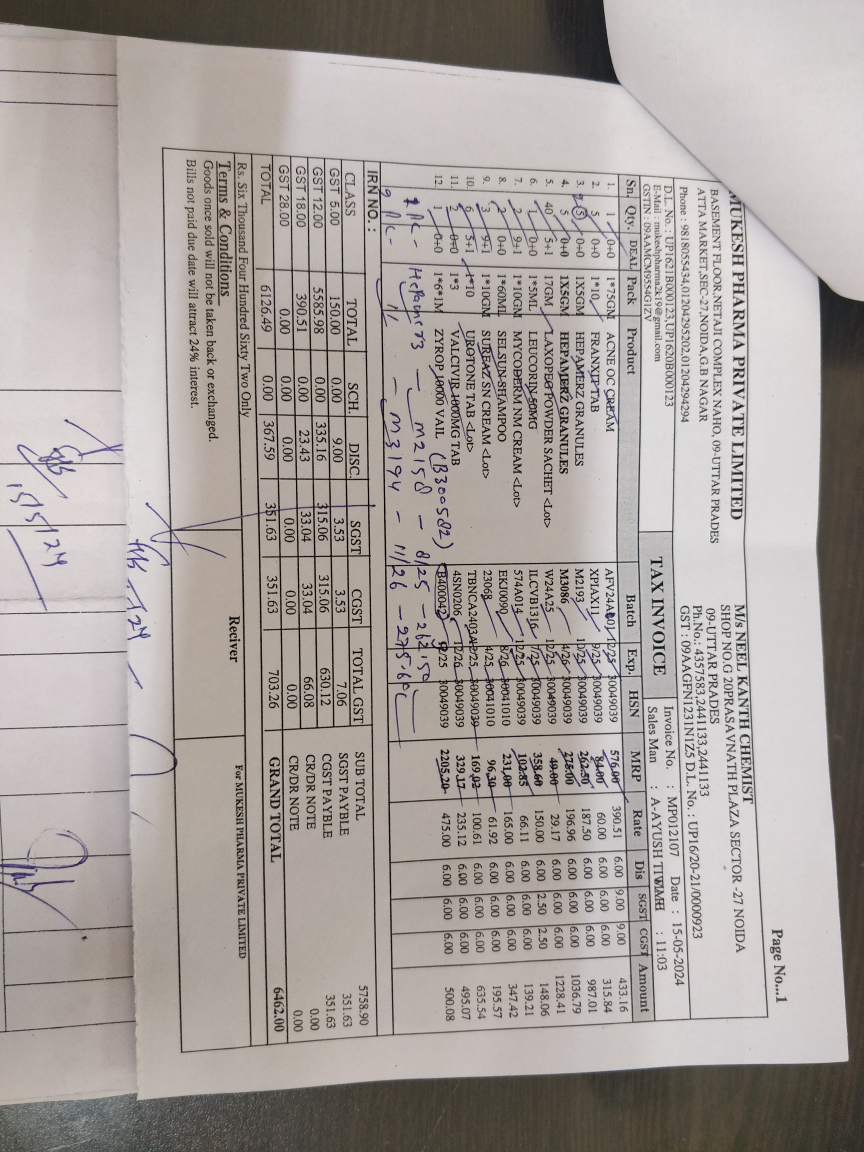 Page No...1
MUKESH PHARMA PRIVATE LIMITED
BASEMENT FLOOR,NETAJI COMPLEX NAHO, 09-UTTAR PRADES
ATTA MARKET,SEC-27,NOIDA,G.B NAGAR
Phone : 9818055434,01204295202,01204294294
D.L. No. : UP1621B000123,UP1620B000123
E-Mail : mukeshpharma2k19@gmail.com
GSTIN : 09AAMCM9554G1ZV
M/s NEEL KANTH CHEMIST
SHOP NO.G 20PRASAVNATH PLAZA SECTOR -27 NOIDA
09-UTTAR PRADES
Ph.No.: 4357583,2441133,2441133
GST : 09AAGFN1231N1Z5 D.L. No. : UP16/20-21/0000923
TAX INVOICE
Invoice No. : MP012107 Date : 15-05-2024
Sales Man : A-AYUSH : 11:03
Sn. Qty. DEAL Pack Product Batch Exp. HSN MRP Rate Dis SGST CGST Amount
1. 1 0+0 1*75GM ACNE OC CREAM 12/25 30049039 576.00 390.51 6.00 9.00 9.00 433.16
2. 5 0+0 1*10 FRANXIT TAB XPIAX11 9/25 30049039 84.00 60.00 6.00 6.00 6.00 315.84
3. 5 0+0 1X5GM HEPAMERZ GRANULES M2193 10/25 30049039 262.50 187.50 6.00 6.00 6.00 987.01
4. 5 0+0 1X5GM HEPAMERZ GRANULES M3086 4/26 30049039 275.00 196.96 6.00 6.00 6.00 1036.79
5. 40 5+1 17GM LAXOPEG POWDER SACHET <Lot> W24A25 12/25 30049039 40.00 29.17 6.00 6.00 6.00 1228.41
6. 1 0+0 1*5ML LEUCORIN 50MG ILCVB1316 7/25 30049039 358.60 150.00 6.00 2.50 2.50 148.06
7. 2 9+1 1*10GM MYCODERM NM CREAM <Lot> 574A014 12/25 30049039 102.85 66.11 6.00 6.00 6.00 139.21
8. 2 0+0 1*60ML SELSUN SHAMPOO EKJ0090 8/26 30041010 231.00 165.00 6.00 6.00 6.00 347.42
9. 3 9+1 1*10GM SUREAZ SN CREAM <Lot> 23068 4/25 30041010 96.30 61.92 6.00 6.00 6.00 195.57
10. 6 5+1 1*10 UROTONE TAB <Lot> TBNCA2403A 12/25 30049039 169.02 100.61 6.00 6.00 6.00 635.54
11. 2 0+0 1*3 VALCIVIR 1000MG TAB 4SN0206 12/26 30049039 329.17 235.12 6.00 6.00 6.00 495.07
12. 1 0+0 1*6*1M ZYROP 10000 VAIL (B300582) B400042 9/25 30049039 2205.20 475.00 6.00 6.00 6.00 500.08
M2158 - 8/25 - 262.50
M3194 - 11/26 - 275.60
IRN NO. :
CLASS TOTAL SCH. DISC. SGST CGST TOTAL GST
GST 5.00 150.00 0.00 9.00 3.53 3.53 7.06
GST 12.00 5585.98 0.00 335.16 315.06 315.06 630.12
GST 18.00 390.51 0.00 23.43 33.04 33.04 66.08
GST 28.00 0.00 0.00 0.00 0.00 0.00 0.00
TOTAL 6126.49 0.00 367.59 351.63 351.63 703.26
SUB TOTAL 5758.90
SGST PAYBLE 351.63
CGST PAYBLE 351.63
CR/DR NOTE 0.00
CR/DR NOTE 0.00
GRAND TOTAL 6462.00
Rs. Six Thousand Four Hundred Sixty Two Only
Terms & Conditions
Goods once sold will not be taken back or exchanged.
Bills not paid due date will attract 24% interest.
Reciver
For MUKESH PHARMA PRIVATE LIMITED
15/5/24